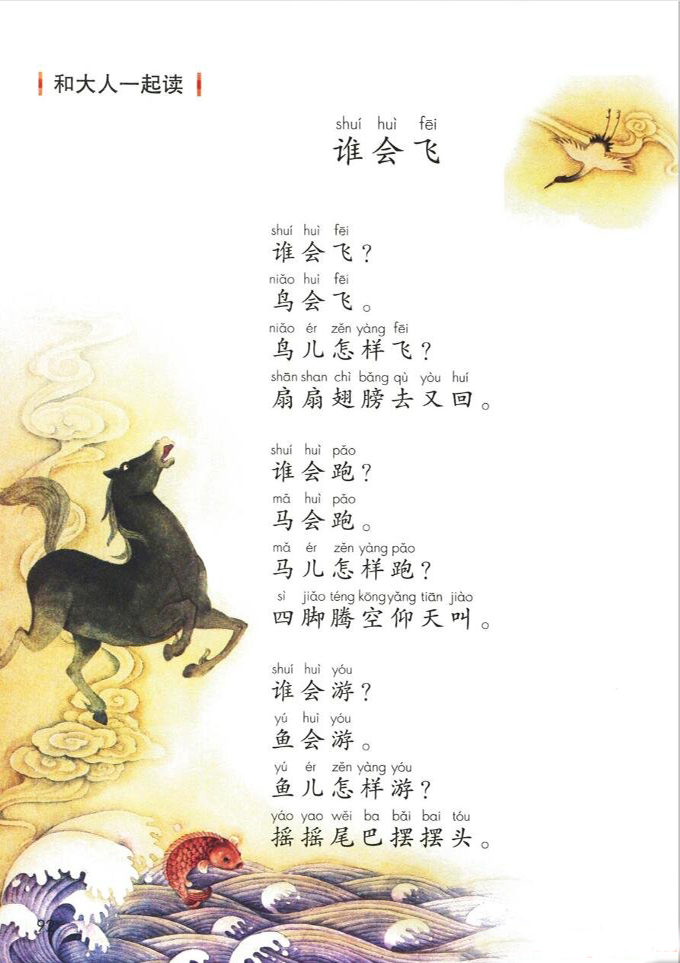 和大人一起读
shuí huì fēi
谁会飞
shuí huì fēi
谁会飞？
niǎo huì fēi
鸟会飞。
niǎo ér zěn yàng fēi
鸟儿怎样飞？
shān shan chì bǎng qù yòu huí
扇扇翅膀去又回。
shuí huì pǎo
谁会跑？
mǎ huì pǎo
马会跑。
mǎ ér zěn yàng pǎo
马儿怎样跑？
sì jiǎo téng kōng yǎng tiān jiào
四脚腾空仰天叫。
shuí huì yóu
谁会游？
yú huì yóu
鱼会游。
yú ér zěn yàng yóu
鱼儿怎样游？
yáo yao wěi ba bǎi bai tóu
摇摇尾巴摆摆头。